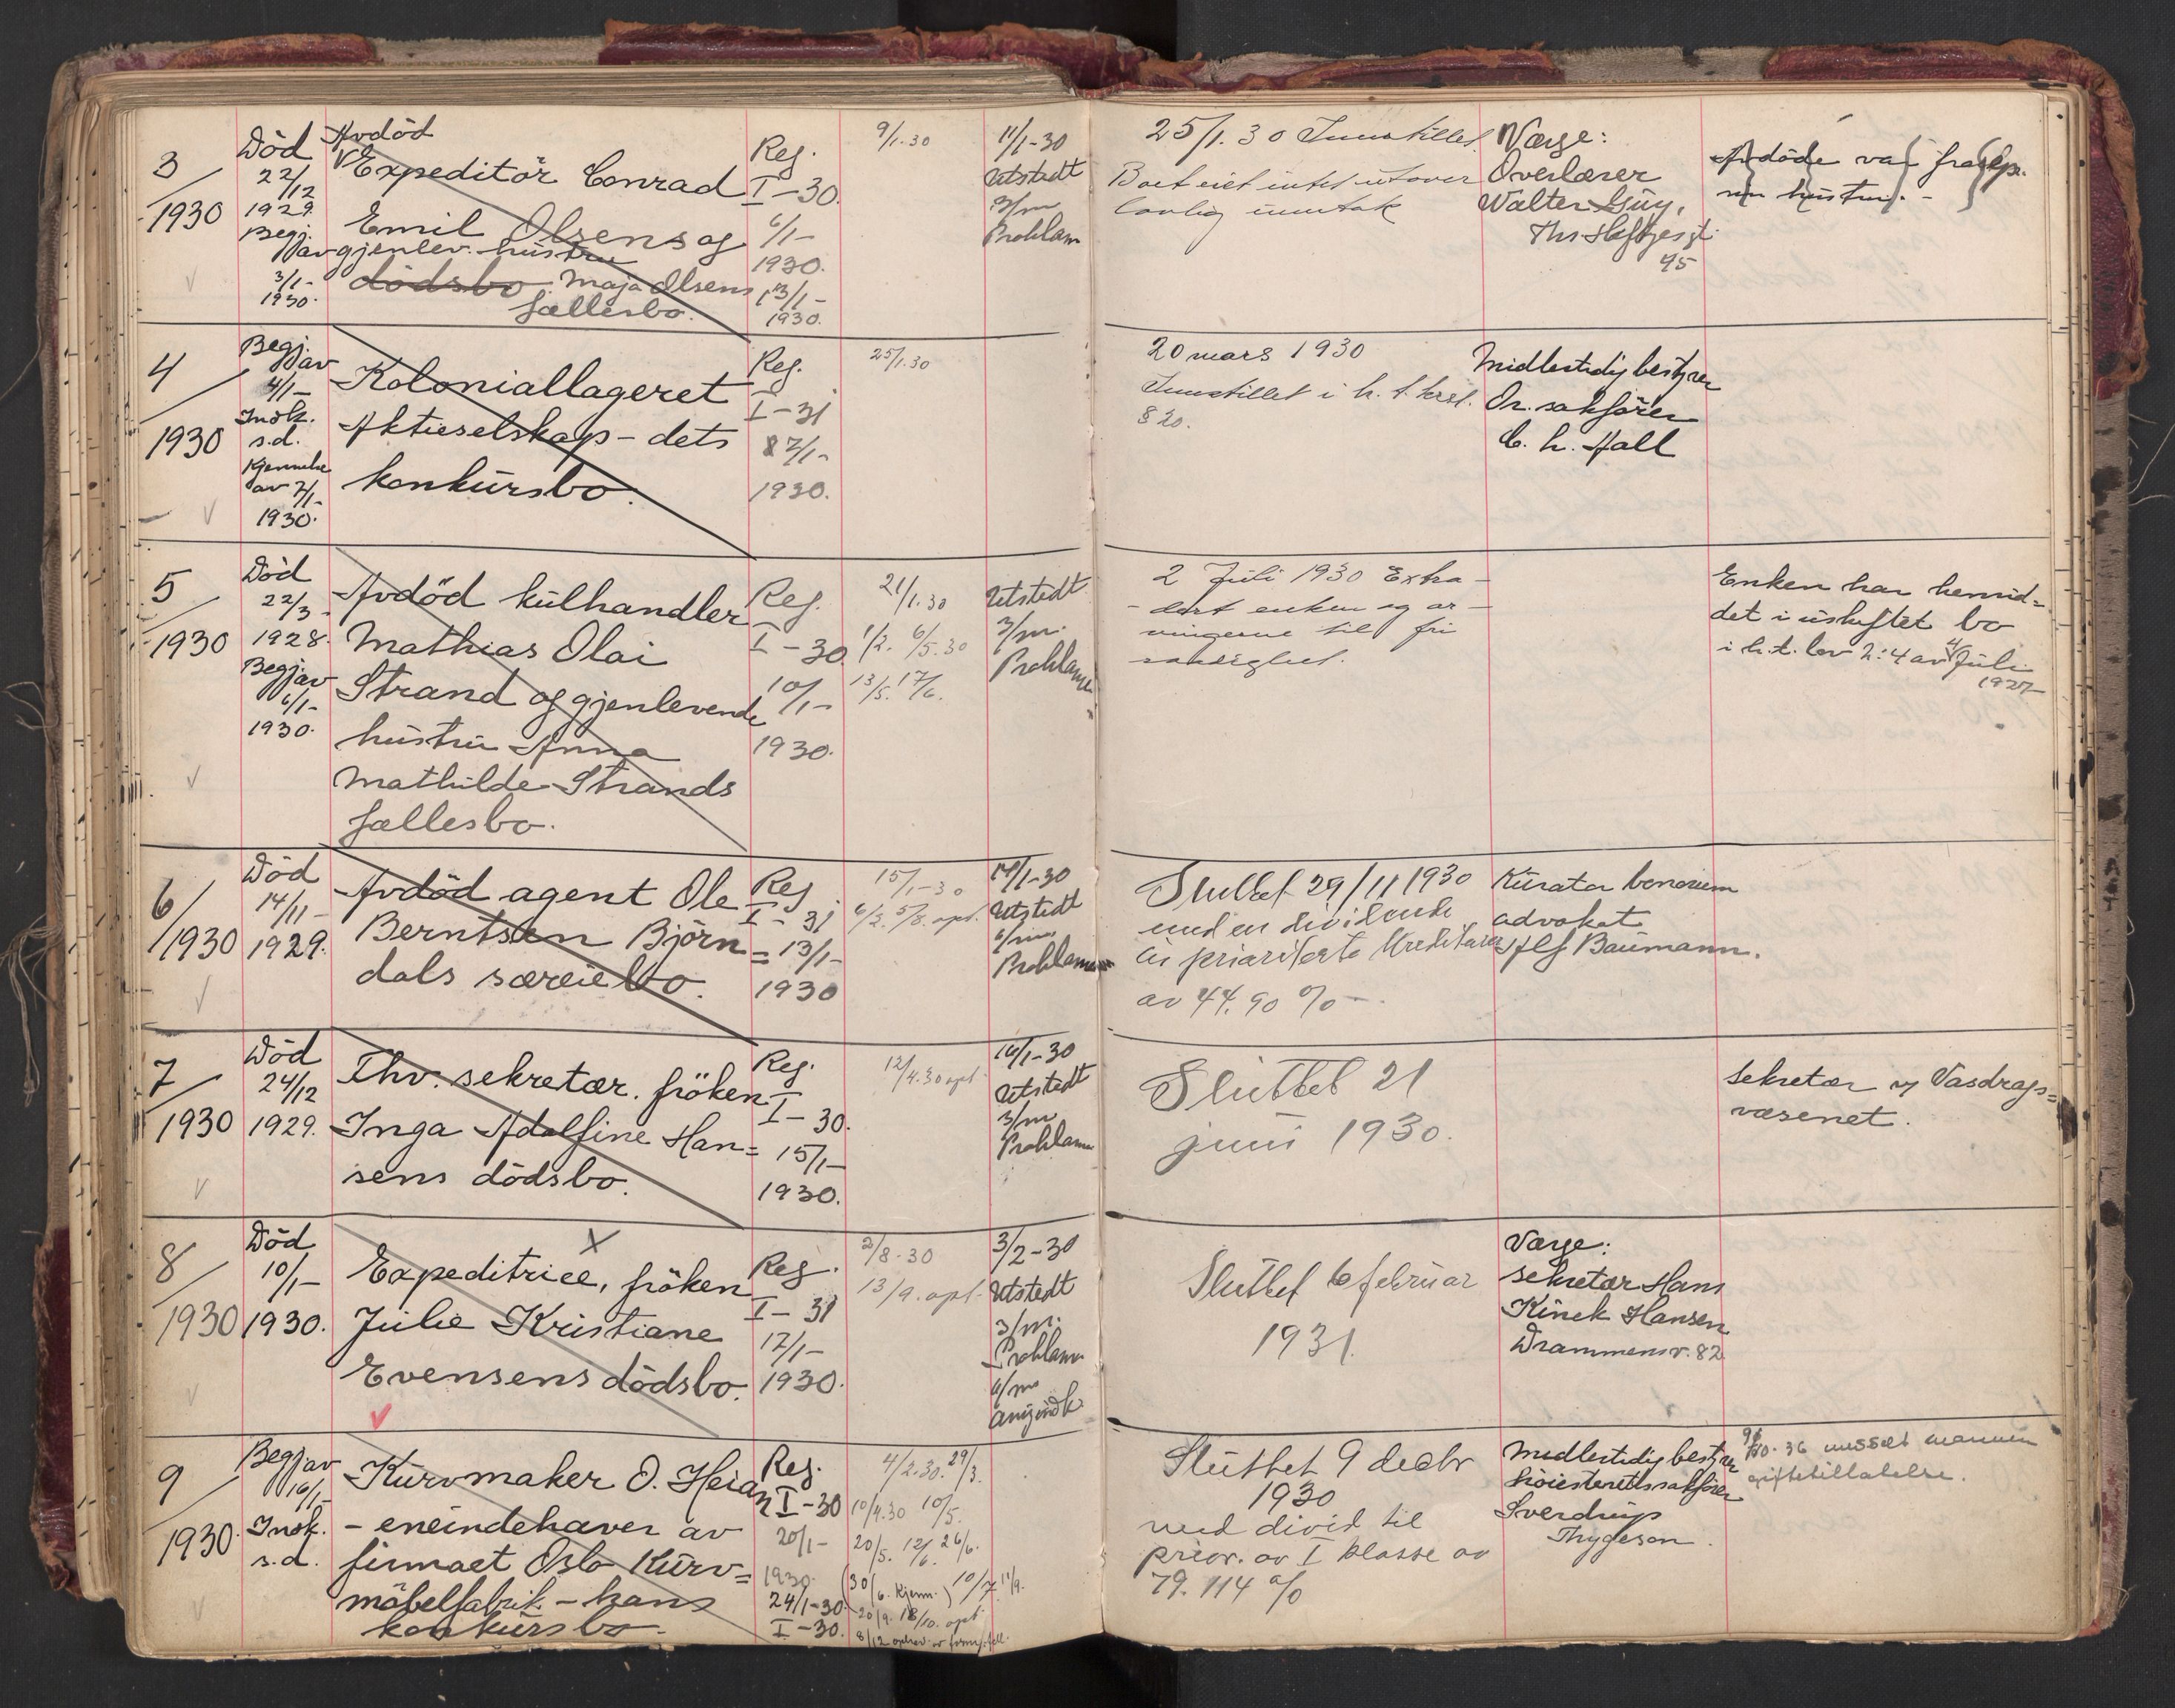 3
1930
Död
22/12
1929.
Begj. av
3/1-
1930.
Avdöd
Expeditör Conrad
Emil Olsens og
gjenlev. hustru
dödsbo. Maja Olsens
fællesbo.
Reg.
I-30.
6/1-
1930.
13/1-
1930.
9/1-30
11/1-30
Utstedt
3/m
Proklam
25/1.30 Innstillet.
Boet eiet intet utover
lovlig unntak
Værge:
Overlærer
Walter
45
Avdöde var frasep.
sin hustru.-
4
1930
Begj. av
4/1-
Insk.
s.d.
Kjennelse
av 7/1-
1930.
Koloniallageret
Aktieselskap - dets
konkursbo.
Reg.
I-31
7/1-
1930.
25/1.30
20 mars 1930
Innstillet i h. t. kksl.
§ 20.
Midlertidig bestyrer
Or. sakförer
C. h. Hall
5
1930
Död
22/3
1928.
Begj. av
6/1-
1930.
Avdöd kulhandler
Mathias Olai
Strand og gjenlevende
hustru Anna
Mathilde Strands
fællesbo.
Reg.
I-30
10/1-
1930.
21/1.30
1/2. 6/5.30
13/5. 17/6.
Utstedt
3/m.
Proklama
2 Juli 1930 Extra-
-dert enken og ar-
vingerne til fri
raadighet.
Enken har hensid=
det i uskiftet bo
i h.t. lov 2:4 av Juli
1927
6
1930
Död
14/11-
1929.
Avdöd agent Ole
Berntsen Björn=
dals særeiebo.
Reg
I-31
13/1-
1930
15/1-30
6/2. 5/8. opt.
14/1-30
Utstedt
6/mns
Proklama
Sluttet 29/11 1930
med en dividende
til prioriterte kreditorer
av 44,90 %-.
Kurator bonorum
advokat
Alf Baumann.
7
1930
Död
24/12
1929.
Fhv. sekretær. fröken
Inga Adolfine Han=
sens dödsbo.
Reg.
I-30.
15/1-
1930.
12/4.30 opt
16/1-30
Utstedt
3/m
Proklama
Sluttet 21
juni 1930.
Sekretær v/ Vasdrags=
væsenet.
8
1930
Död
10/1-
1930.
Expeditrice, fröken
Julie Kristiane
Evensens dödsbo.
Reg.
I-31
17/1-
1930.
2/8-30
13/9. opt.
3/2-30
Utstedt
3/m.
Proklam
6/m
Sluttet 6 februar
1931.
Værge:
Sekretær Hans
Kinck Hansen
Drammensv. 82
9
1930.
Begj av
16/1-
Insk.
s.d.
Kurvmaker O. Heian
- eneindehaver av
firmaet Oslo Kurv=
möbelfabrik - hans
konkursbo.
Reg.
I-30
20/1-
1930.
24/1-30.
I-30.
4/2.30. 29/3.
10/4.30 10/5.
20/5. 12/6. 26/6.
(30/6. Kjenn.) 10/7. 11/9.
20/9. 18/10. opt
Sluttet 9 decbr
1930
med divid til
prior. av I klasse av
79.114 %
Midlertidig bestyrer
höiesteretssakförer
Sverdrup
Thygeson.